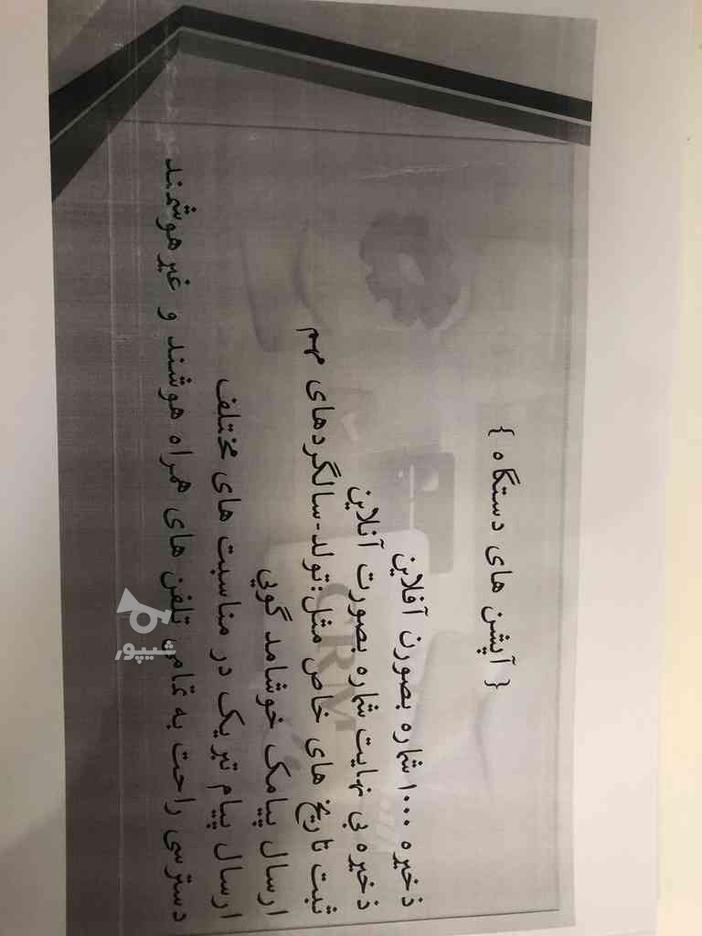 { آپشن های دستگاه }
ذخیره ۱۰۰۰ شماره بصورن آفلاین
ذخیره بی نهایت شماره بصورت آنلاین
ثبت تاریخ های خاص مثل:تولد-سالگردهای مهم
ارسال پیامک خوشامد گویی
ارسال پیام تبریک در مناسبت های مختلف
دسترسی راحت به تمامی تلفن های همراه هوشند و غیر هوشمند
CRM
شیپور